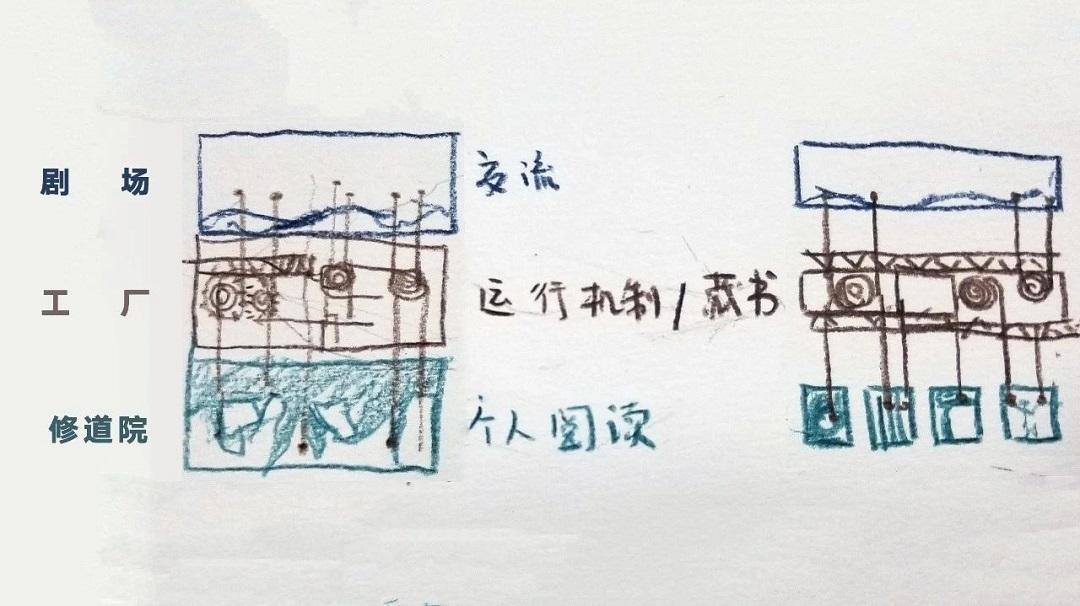 剧场
交流
工厂
运行机制/藏书
修道院
个人阅读